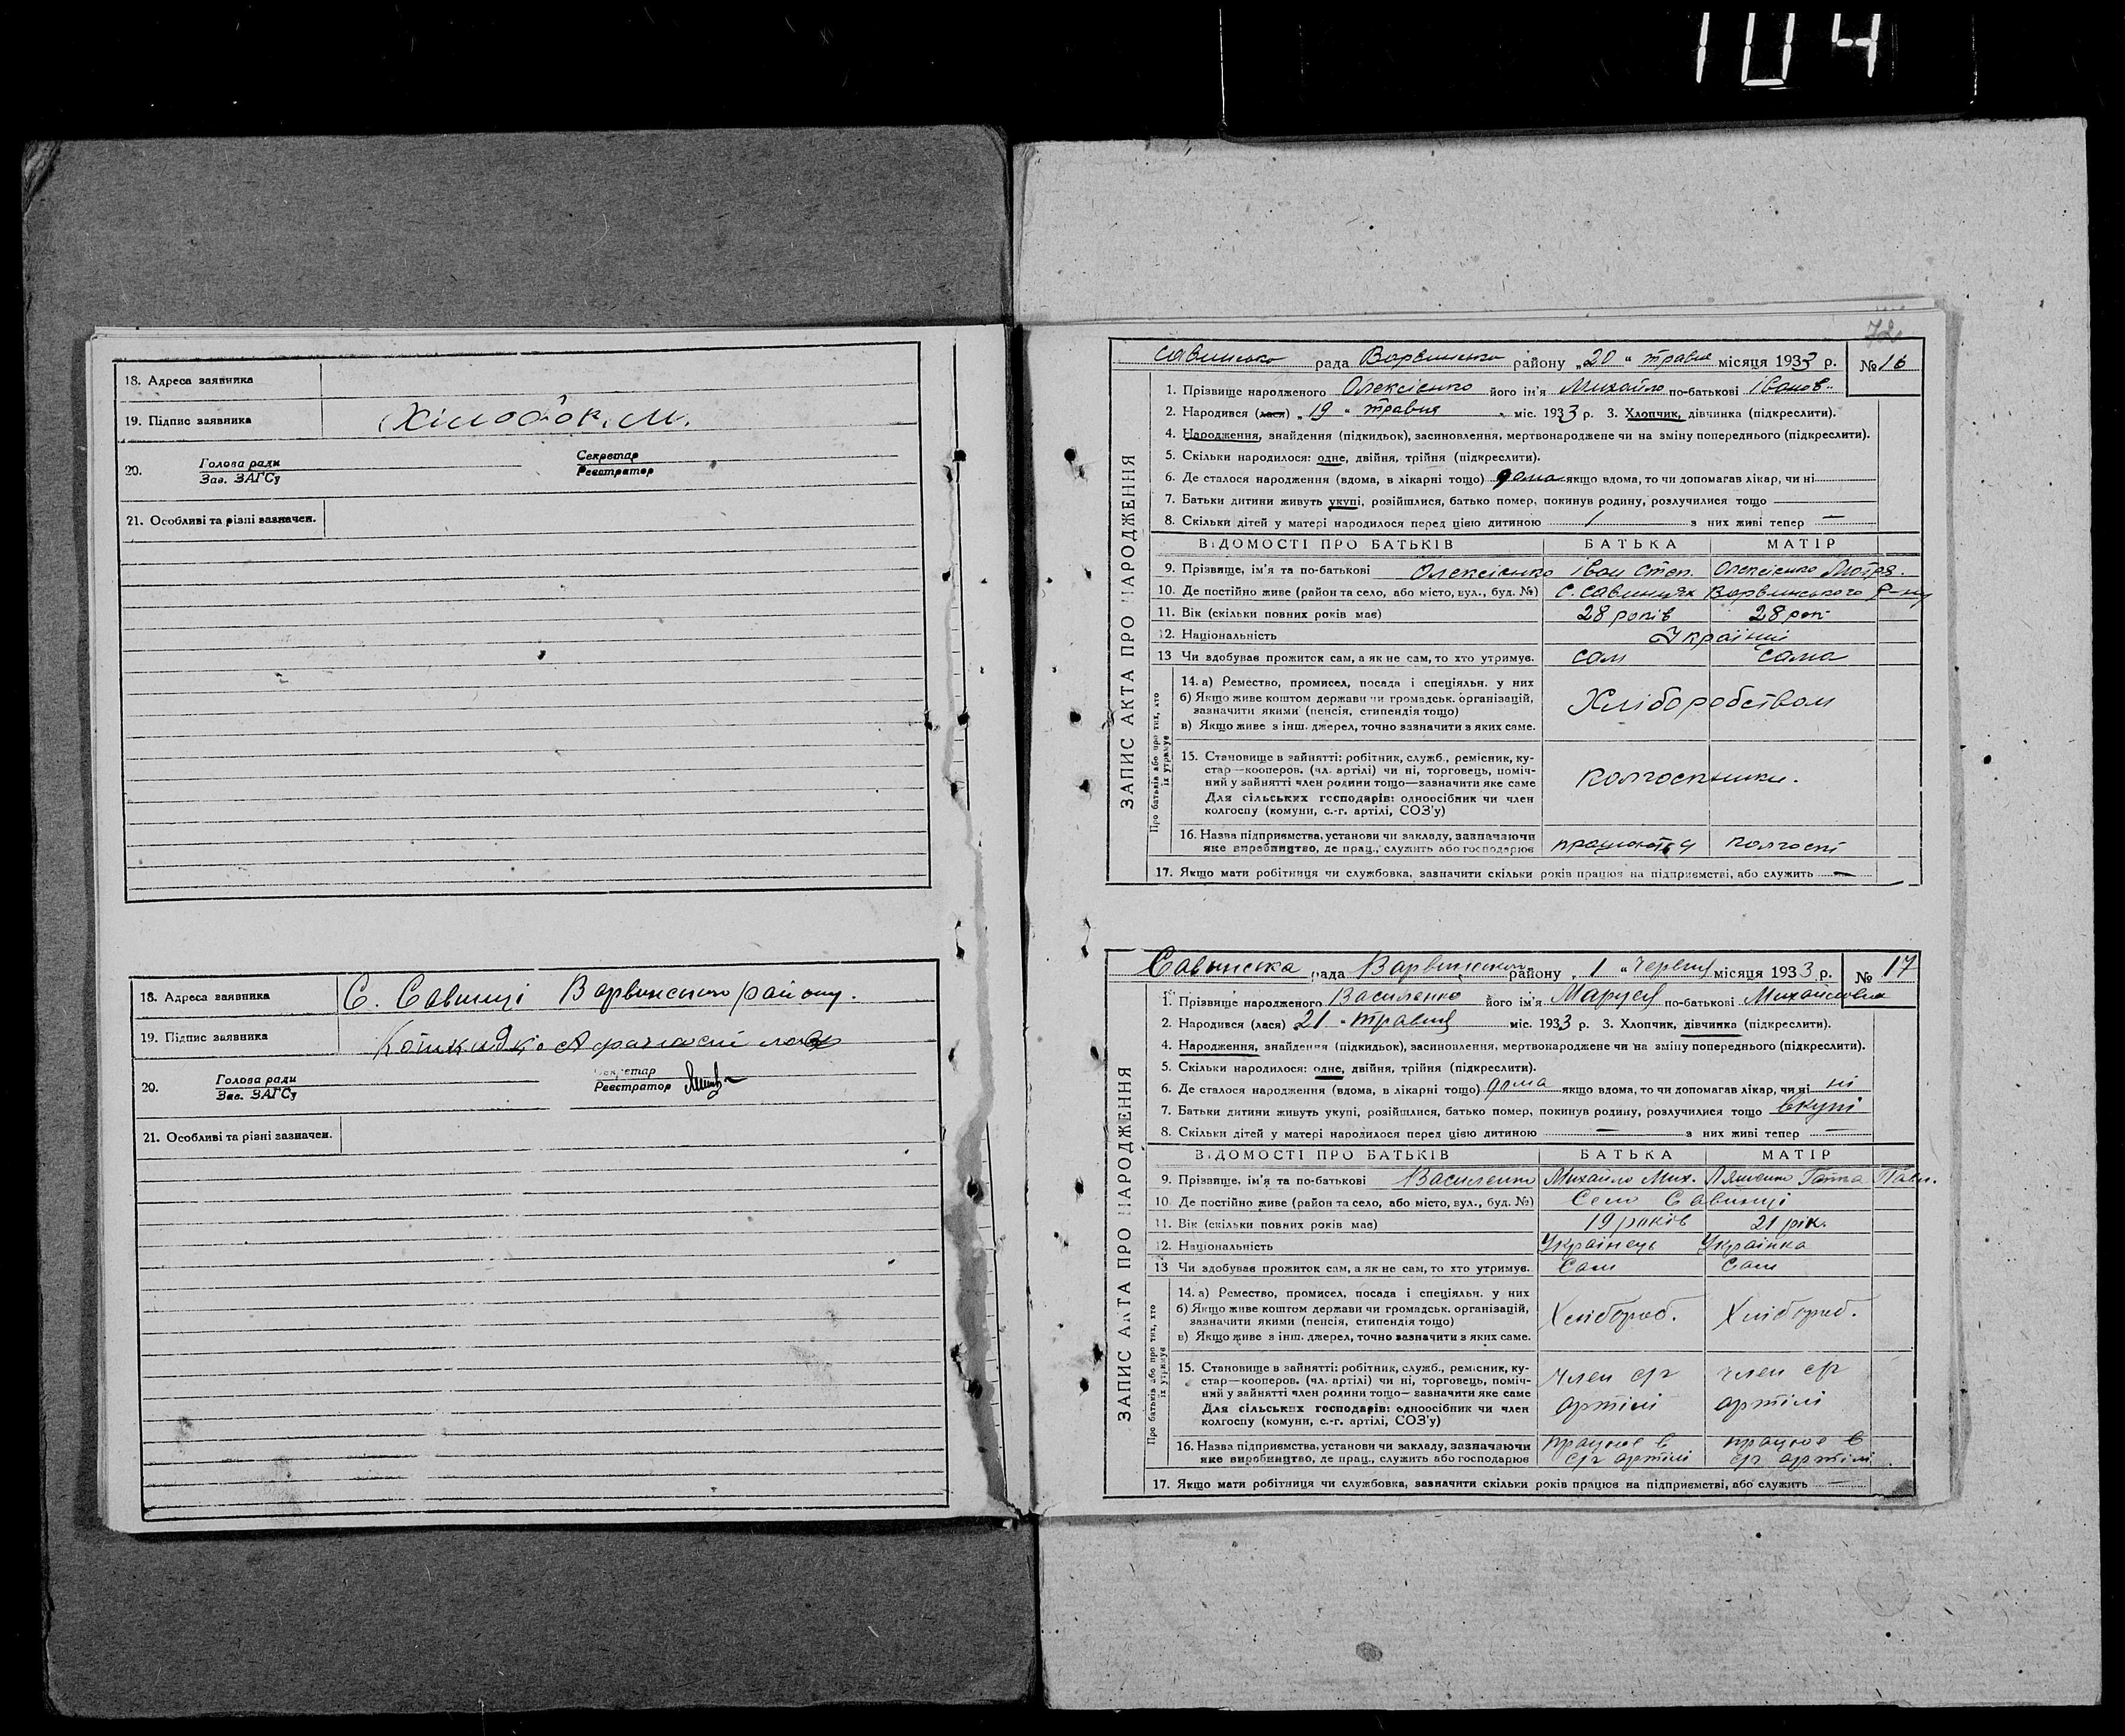 104
18. Адреса заявника
19. Підпис заявника Хілобок. М.
20. Голова ради Секретар
Зав. ЗАГСу Реєстратор
21. Особливі та різні зазначен.
18. Адреса заявника С. Савинці Варвинського району.
19. Підпис заявника
20. Голова ради Секретар
Зав. ЗАГСу Реєстратор
21. Особливі та різні зазначен.
72
Савинсько рада Варвинсько району „20 “ травня місяця 1933 р. № 16
1. Прізвище народженого Олексієнко його ім'я Михайло по-батькові Іванов.
2. Народився (лася) „ 19 “ травня міс. 1933 р. 3. Хлопчик, дівчинка (підкреслити).
4. Народження, знайдення (підкидьок), засиновлення, мертвонароджене чи на зміну попереднього (підкреслити).
5. Скільки народилося: одне, двійня, трійня (підкреслити).
6. Де сталося народження (вдома, в лікарні тощо) дома якщо вдома, то чи допомагав лікар, чи ні
7. Батьки дитини живуть укупі, розійшлися, батько помер, покинув родину, розлучилися тощо
8. Скільки дітей у матері народилося перед цією дитиною 1 з них живі тепер —
ЗАПИС АКТА ПРО НАРОДЖЕННЯ
ВІДОМОСТІ ПРО БАТЬКІВ БАТЬКА МАТІР
9. Прізвище, ім'я та по-батькові Олексієнко Іван Степ. Олексієнко Мотря.
10. Де постійно живе (район та село, або місто, вул., буд. №) с. Савинцях Варвинського р-ну
11. Вік (скільки повних років має) 28 років 28 рок
12. Національність Українці
13 Чи здобуває прожиток сам, а як не сам, то хто утримує. сам сама
Про батьків або про тих, хто їх утримує
14. а) Ремество, промисел, посада і спеціяльн. у них
б) Якщо живе коштом держави чи громадськ. організацій,
зазначити якими (пенсія, стипендія тощо) Хліборобством
в) Якщо живе з інш. джерел, точно зазначити з яких саме.
15. Становище в зайнятті: робітник, служб., ремісник, ку-
стар—кооперов. (чл. артілі) чи ні, торговець, поміч-
ний у зайнятті член родини тощо—зазначити яке саме колгоспники.
Для сільських господарів: одноосібник чи член
колгоспу (комуни, с.-г. артілі, СОЗ'у)
16. Назва підприємства, установи чи закладу, зазначаючи
яке виробництво, де прац., служить або господарює колгоспі
17. Якщо мати робітниця чи службовка, зазначити скільки років працює на підприємстві, або служить —
Савинська рада Варвинського району „ 1 “ Червня місяця 1933 р. № 17
1. Прізвище народженого Василенко його ім'я Маруся по-батькові Михайловна
2. Народився (лася) 21 “ травня міс. 1933 р. 3. Хлопчик, дівчинка (підкреслити).
4. Народження, знайдення (підкидьок), засиновлення, мертвонароджене чи на зміну попереднього (підкреслити).
5. Скільки народилося: одне, двійня, трійня (підкреслити).
6. Де сталося народження (вдома, в лікарні тощо) дома якщо вдома, то чи допомагав лікар, чи ні ні
7. Батьки дитини живуть укупі, розійшлися, батько помер, покинув родину, розлучилися тощо вкупі
8. Скільки дітей у матері народилося перед цією дитиною — з них живі тепер —
ЗАПИС АКТА ПРО НАРОДЖЕННЯ
ВІДОМОСТІ ПРО БАТЬКІВ БАТЬКА МАТІР
9. Прізвище, ім'я та по-батькові Василенко Михайло Мих. Ляшенко Гапка Павл.
10. Де постійно живе (район та село, або місто, вул., буд. №) Село Савинці
11. Вік (скільки повних років має) 19 років 21 рік.
12. Національність Українець Українка
13 Чи здобуває прожиток сам, а як не сам, то хто утримує. Сам Сам
Про батьків або про тих, хто їх утримує
14. а) Ремество, промисел, посада і спеціяльн. у них
б) Якщо живе коштом держави чи громадськ. організацій,
зазначити якими (пенсія, стипендія тощо) Хлібороб. Хлібороб.
в) Якщо живе з інш. джерел, точно зазначити з яких саме.
15. Становище в зайнятті: робітник, служб., ремісник, ку-
стар—кооперов. (чл. артілі) чи ні, торговець, поміч- член с/г член с/г
ний у зайнятті член родини тощо—зазначити яке саме
Для сільських господарів: одноосібник чи член артілі артілі
колгоспу (комуни, с.-г. артілі, СОЗ'у)
16. Назва підприємства, установи чи закладу, зазначаючи працює в працює в
яке виробництво, де прац., служить або господарює с/г артілі с/г артілі
17. Якщо мати робітниця чи службовка, зазначити скільки років працює на підприємстві, або служить —